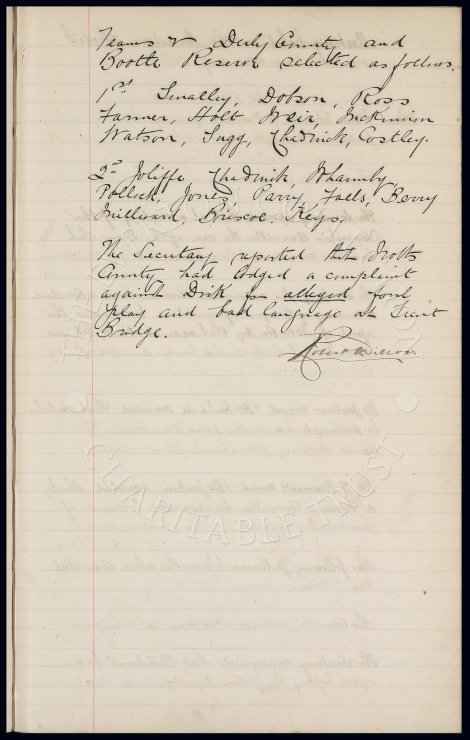 Teams v Derby County and
Bootle Reserve selected as follows.
1st Smalley, Dobson, Ross
Farmer, Holt Weir, McKinnon
Watson, Sugg, Chadwick, Costley.
2nd Joliffe Chadwick, Whamby,
Pollock, Jones, Parry, Falls, Berry
Milward, Briscoe. Keys.
The Secretary reported that Notts
County had lodged a complaint
against Dick for alleged foul
play and bad language at Trent
Bridge.
Robert Wilson
CHARITABLE TRUST